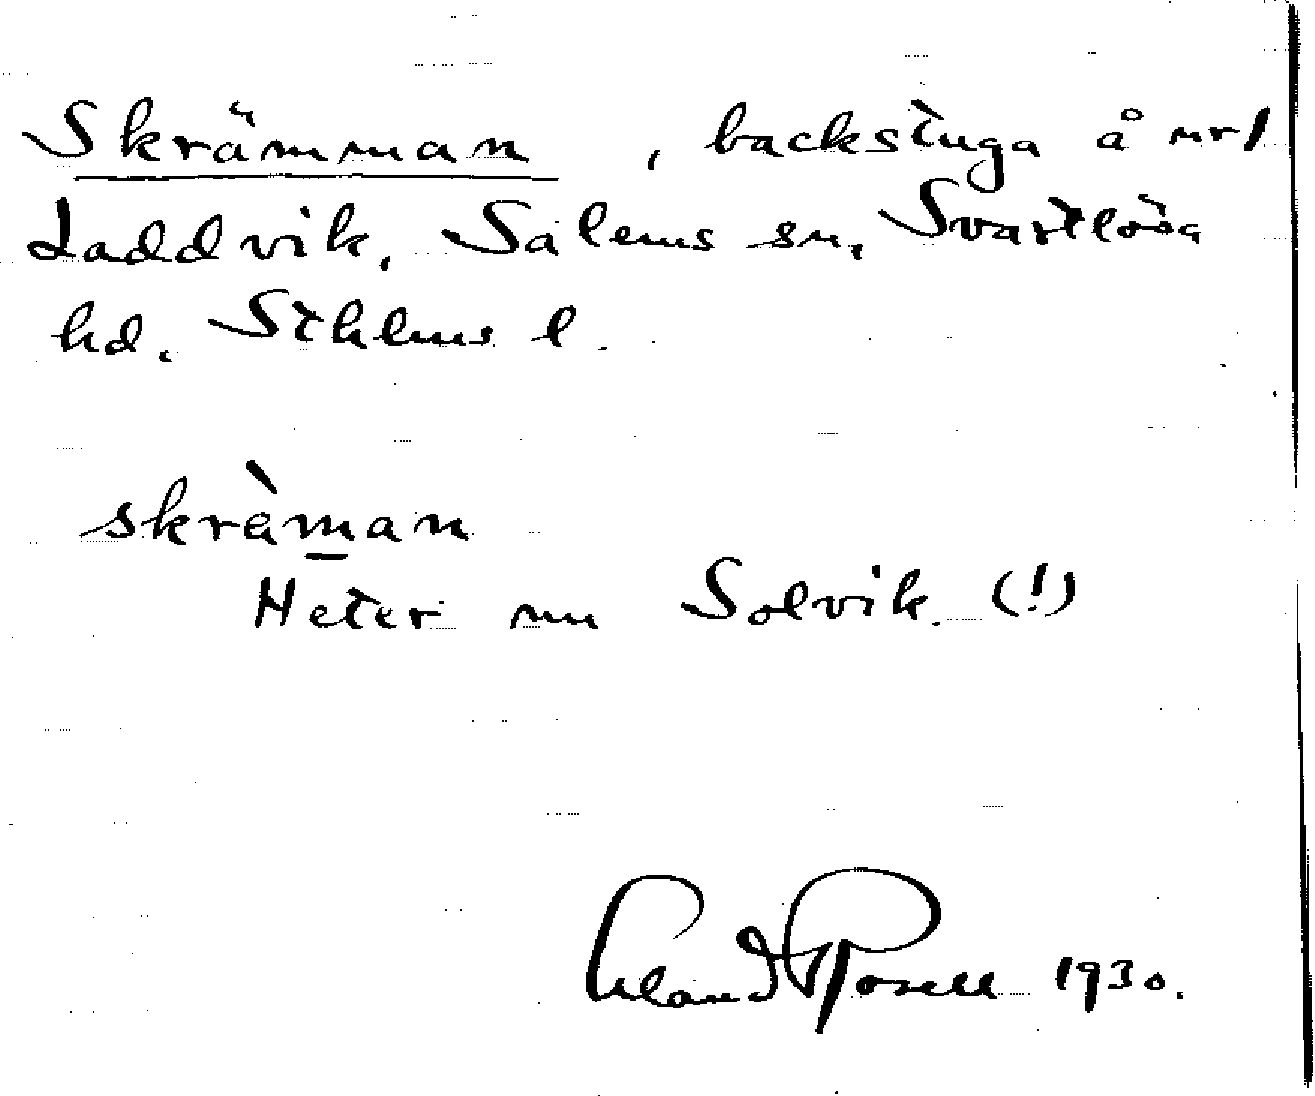 Skrämman, backstuga å nr 1
Laddvik, Salems sn, Svartlösa
hd. Sthlms l.
skràman
Heter nu Solvik. (!)
Erland Rosell 1930.